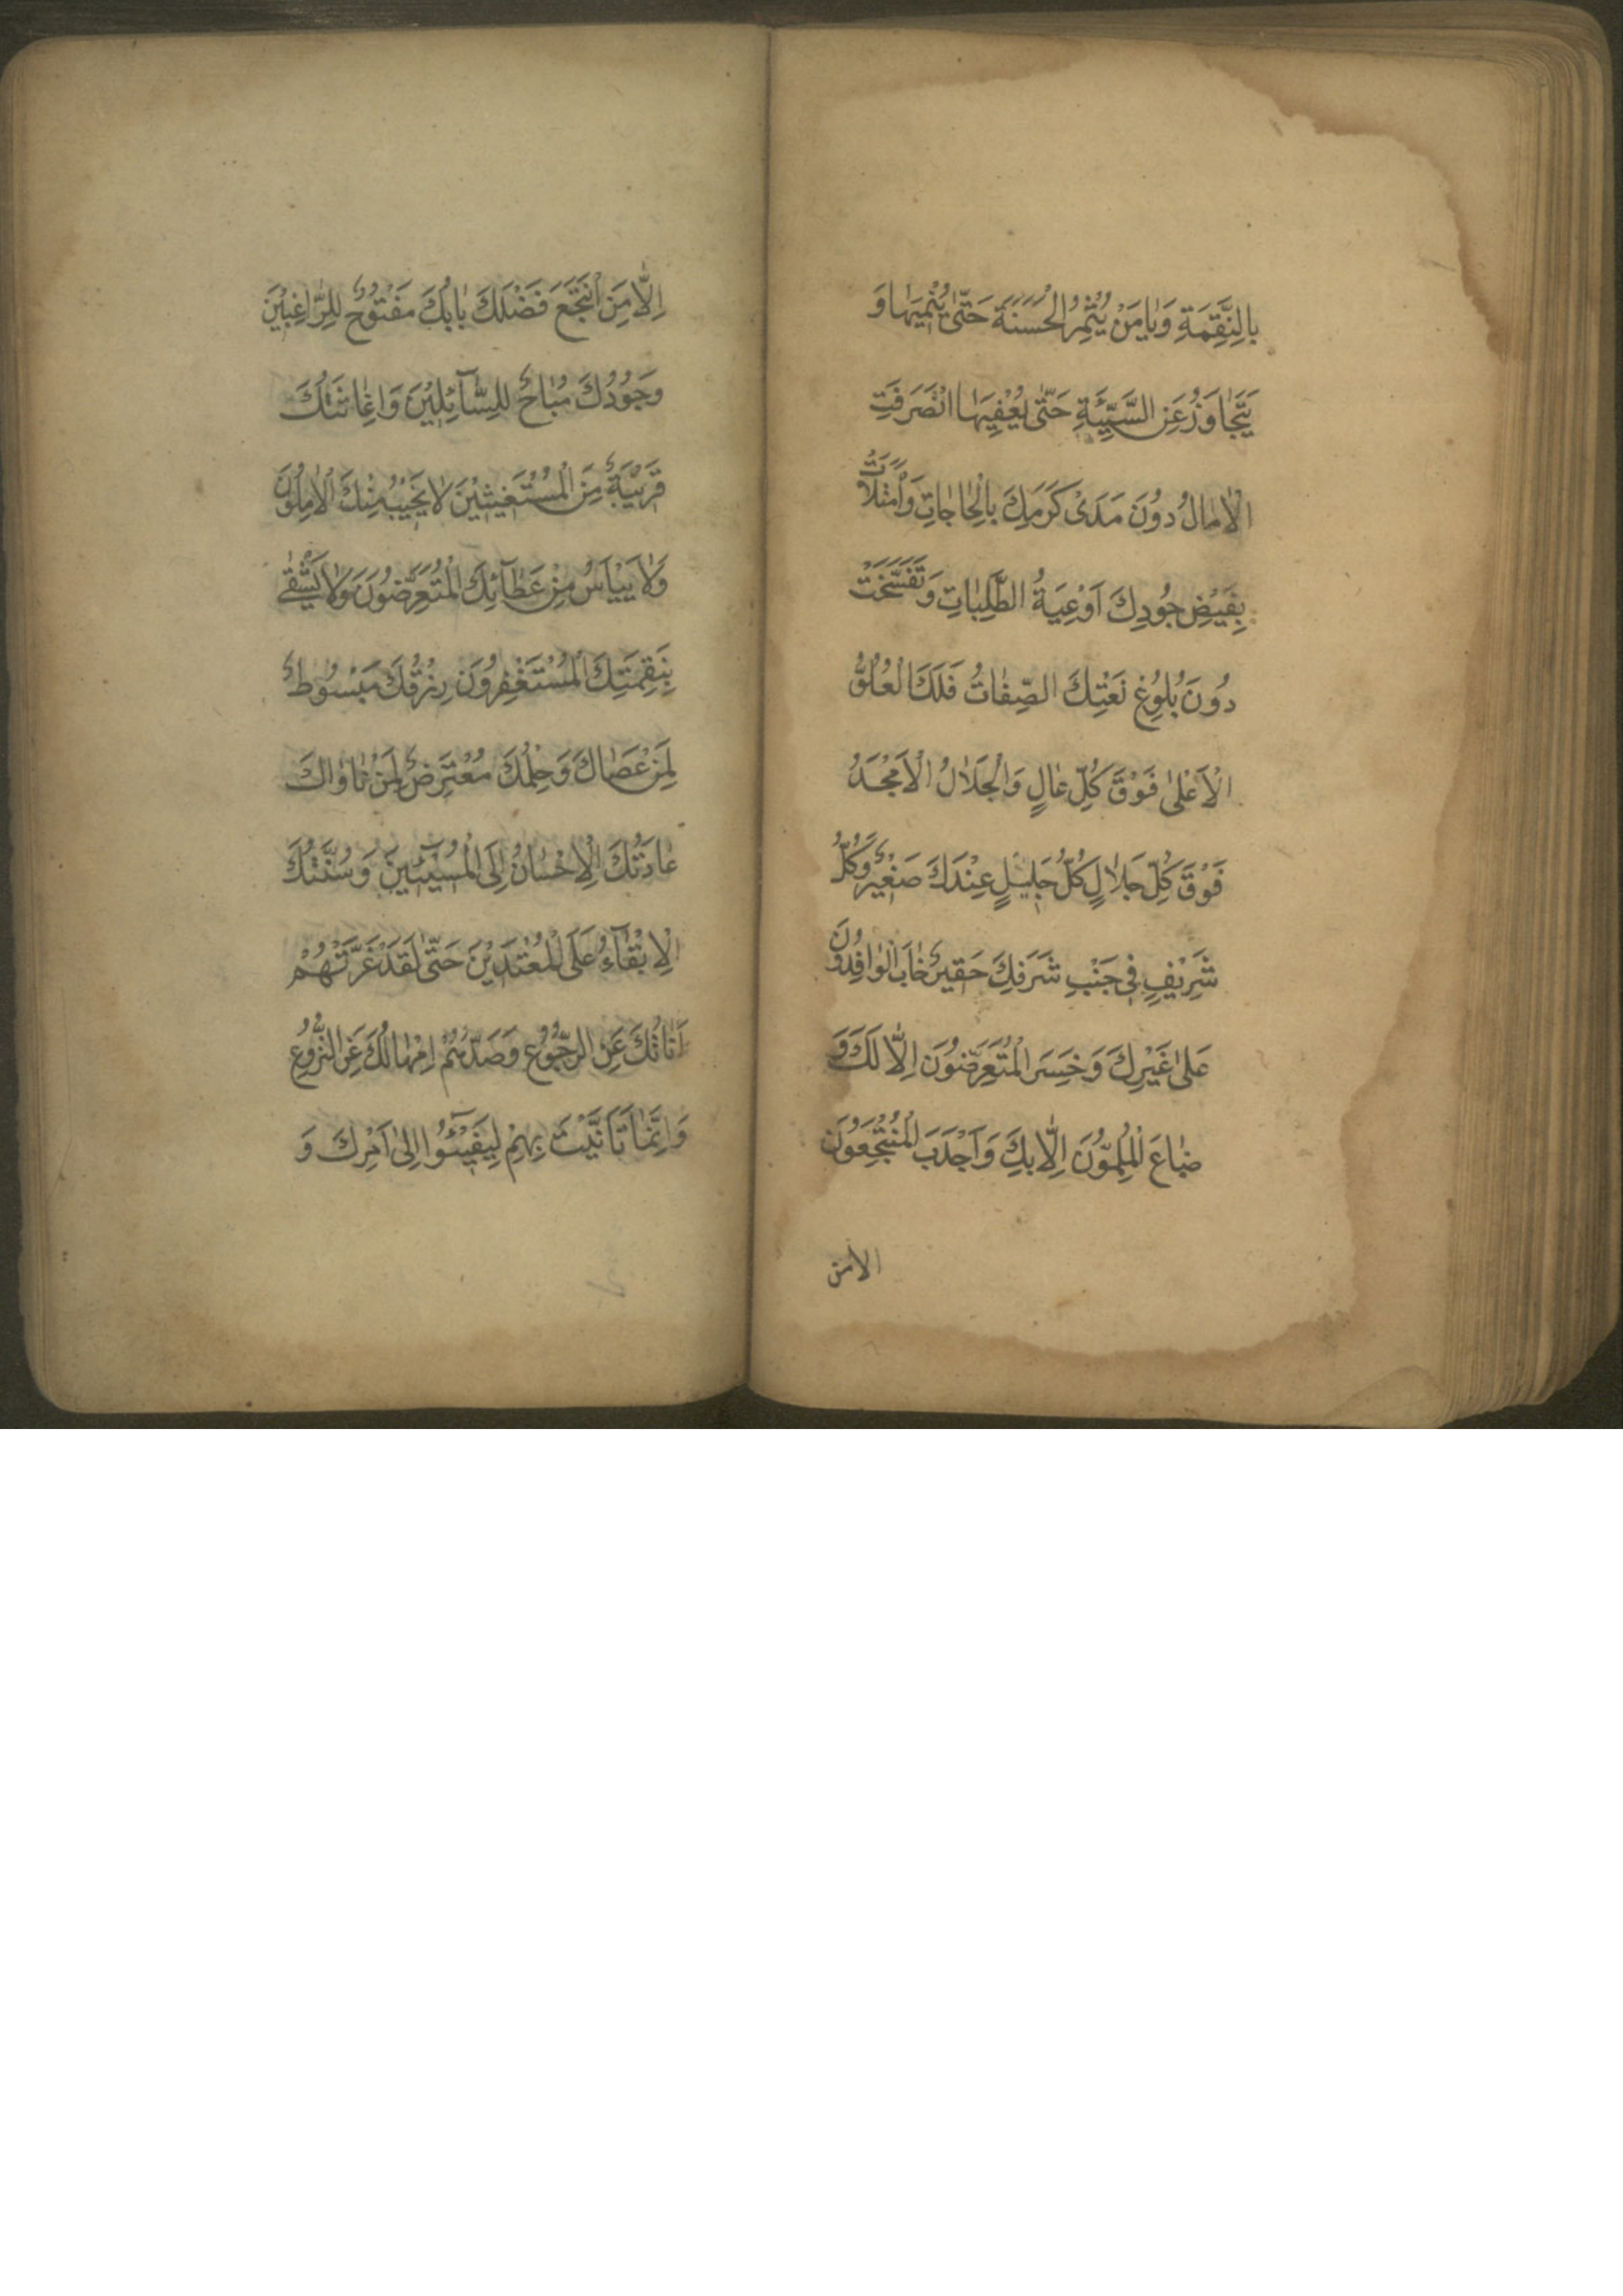 بِالنَّقِمَةِ وَيَا مَنْ يُثْمِرُ الْحَسَنَةَ حَتّىٰ يُنْمِيَهَا وَ
يَتَجَاوَزُ عَنِ السَّيِّئَةِ حَتّىٰ يُعْفِيَهَا انْصَرَفَتِ
الْاٰمَالُ دُونَ مَدَىٰ كَرَمِكَ بِالْحَاجَاتِ وَامْتَلَاَتْ
بِفَيْضِ جُودِكَ اَوْعِيَةُ الطَّلِبَاتِ وَتَفَسَّخَتْ
دُونَ بُلُوغِ نَعْتِكَ الصِّفَاتُ فَلَكَ الْعُلُوُّ
الْاَعْلىٰ فَوْقَ كُلِّ عَالٍ وَالْجَلَالُ الْاَمْجَدُ
فَوْقَ كُلِّ جَلَالٍ كُلُّ جَلِيلٍ عِنْدَكَ صَغِيرٌ وَكُلُّ
شَرِيْفٍ فِي جَنْبِ شَرَفِكَ حَقِيرٌ خَابَ الْوَافِدُونَ
عَلىٰ غَيْرِكَ وَخَسِرَ الْمُتَعَرِّضُونَ اِلَّا لَكَ وَ
ضَاعَ الْمُلِمُّونَ اِلَّا بِكَ وَاَجْدَبَ الْمُنْتَجِعُونَ
الا من
اِلَّا مَنِ انْتَجَعَ فَضْلَكَ بَابُكَ مَفْتُوحٌ لِلرَّاغِبِيْنَ
وَجُودُكَ مُبَاحٌ لِلسَّآئِلِيْنَ وَاِغَاثَتُكَ
قَرِيْبَةٌ مِنَ الْمُسْتَغِيثِيْنَ لَا يَخِيْبُ مِنْكَ الْاٰمِلُونَ
وَلَا يَيْاَسُ مِنْ عَطَآئِكَ الْمُتَعَرِّضُونَ وَلَا يَشْقىٰ
بِنَقِمَتِكَ الْمُسْتَغْفِرُونَ رِزْقُكَ مَبْسُوطٌ
لِمَنْ عَصَاكَ وَحِلْمُكَ مُعْتَرِضٌ لِمَنْ نَاوَاكَ
عَادَتُكَ الْاِحْسَانُ اِلَى الْمُسِيْئِيْنَ وَسُنَّتُكَ
الْاِبْقَآءُ عَلَى الْمُعْتَدِيْنَ حَتّىٰ لَقَدْ غَرَّتْهُمْ
اَنَاتُكَ عَنِ الرُّجُوعِ وَصَدَّهُمْ اِمْهَالُكَ عَنِ النُّزُوعِ
وَاِنَّمَا تَاَنَّيْتَ بِهِمْ لِيَفِيْئُوا اِلىٰ اَمْرِكَ وَ